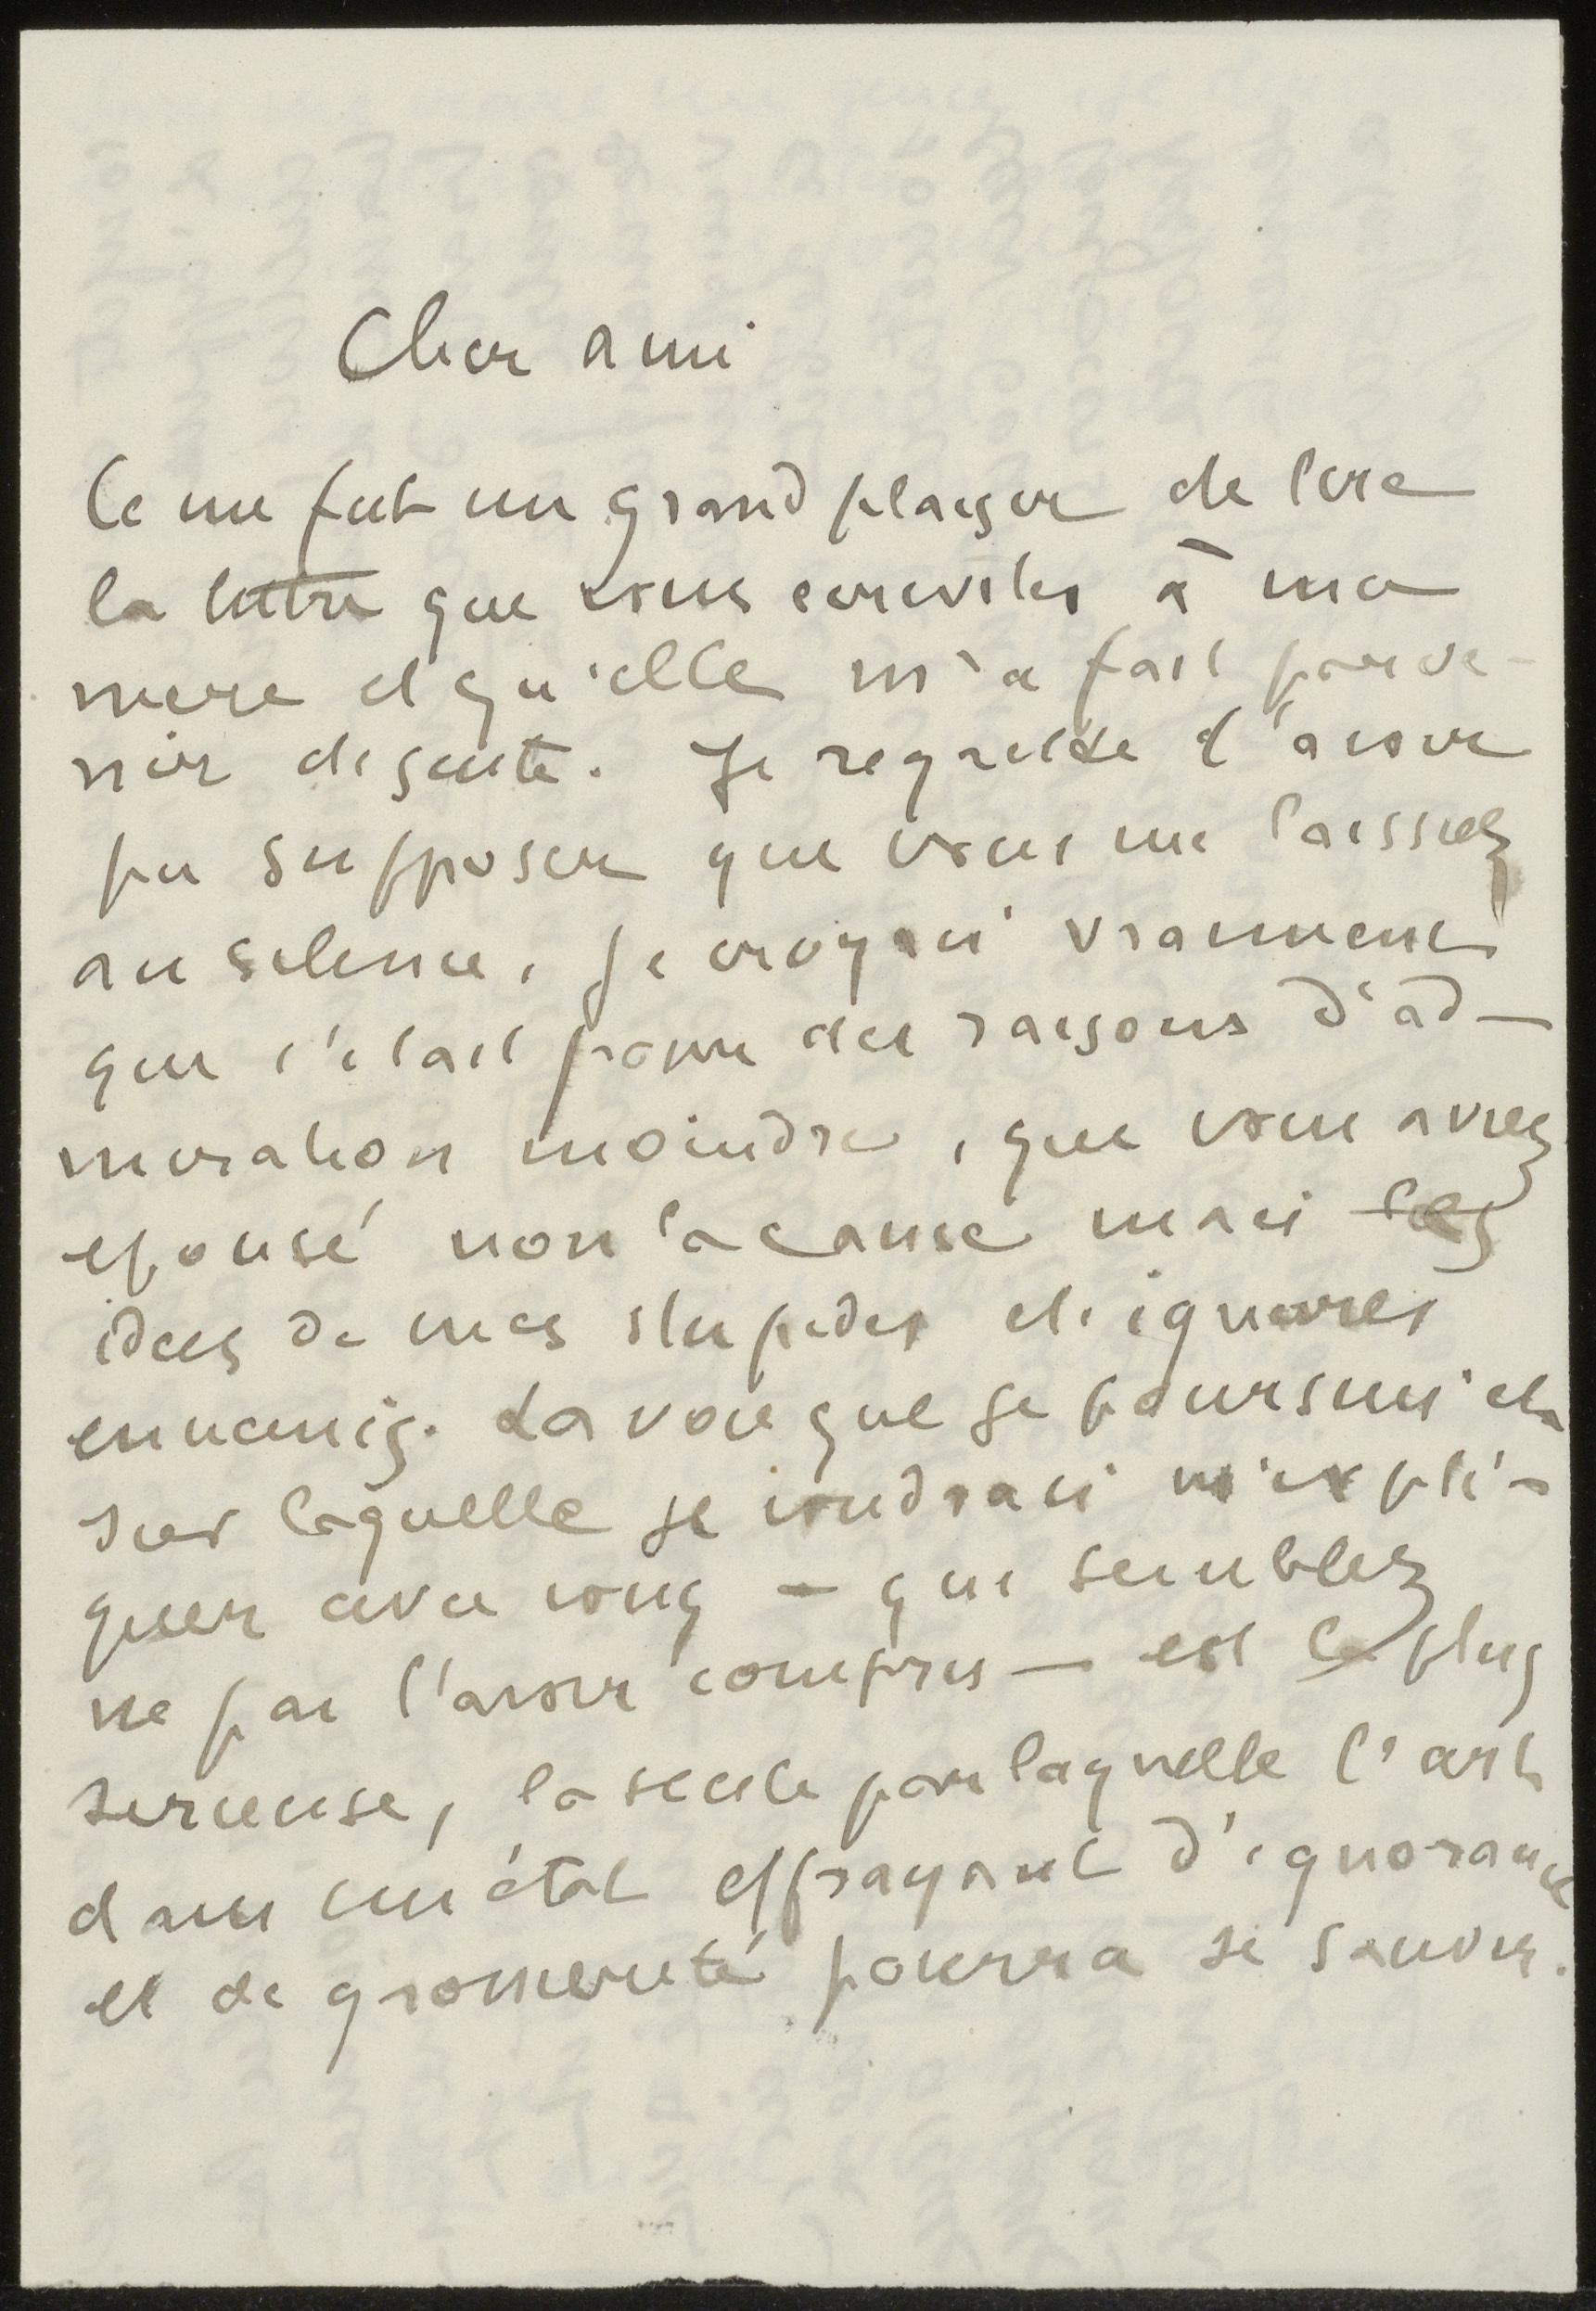 Cher ami
Ce me fut un grand plaisir de lire
la lettre que vous ecrivites à ma
mere et qu'elle m'a fait parve-
nir de suite. Je regrette d'avoir
pu supposer que vous me laissiez
au silence, je croyais vraiment
que c'etait pour des raisons d'ad-
miration moindre, que vous aviez
epousé non la cause mais les
idees de mes stupides et ignares
ennemis. La voie que je poursuis et
sur laquelle je voudrais m'expli-
quer avec vous – qui semblez
ne pas l'avoir compris – est la plus
serieuse, la seule par laquelle l'art
dans un état effrayant d'ignorance
et de grossiereté pourra se sauver.